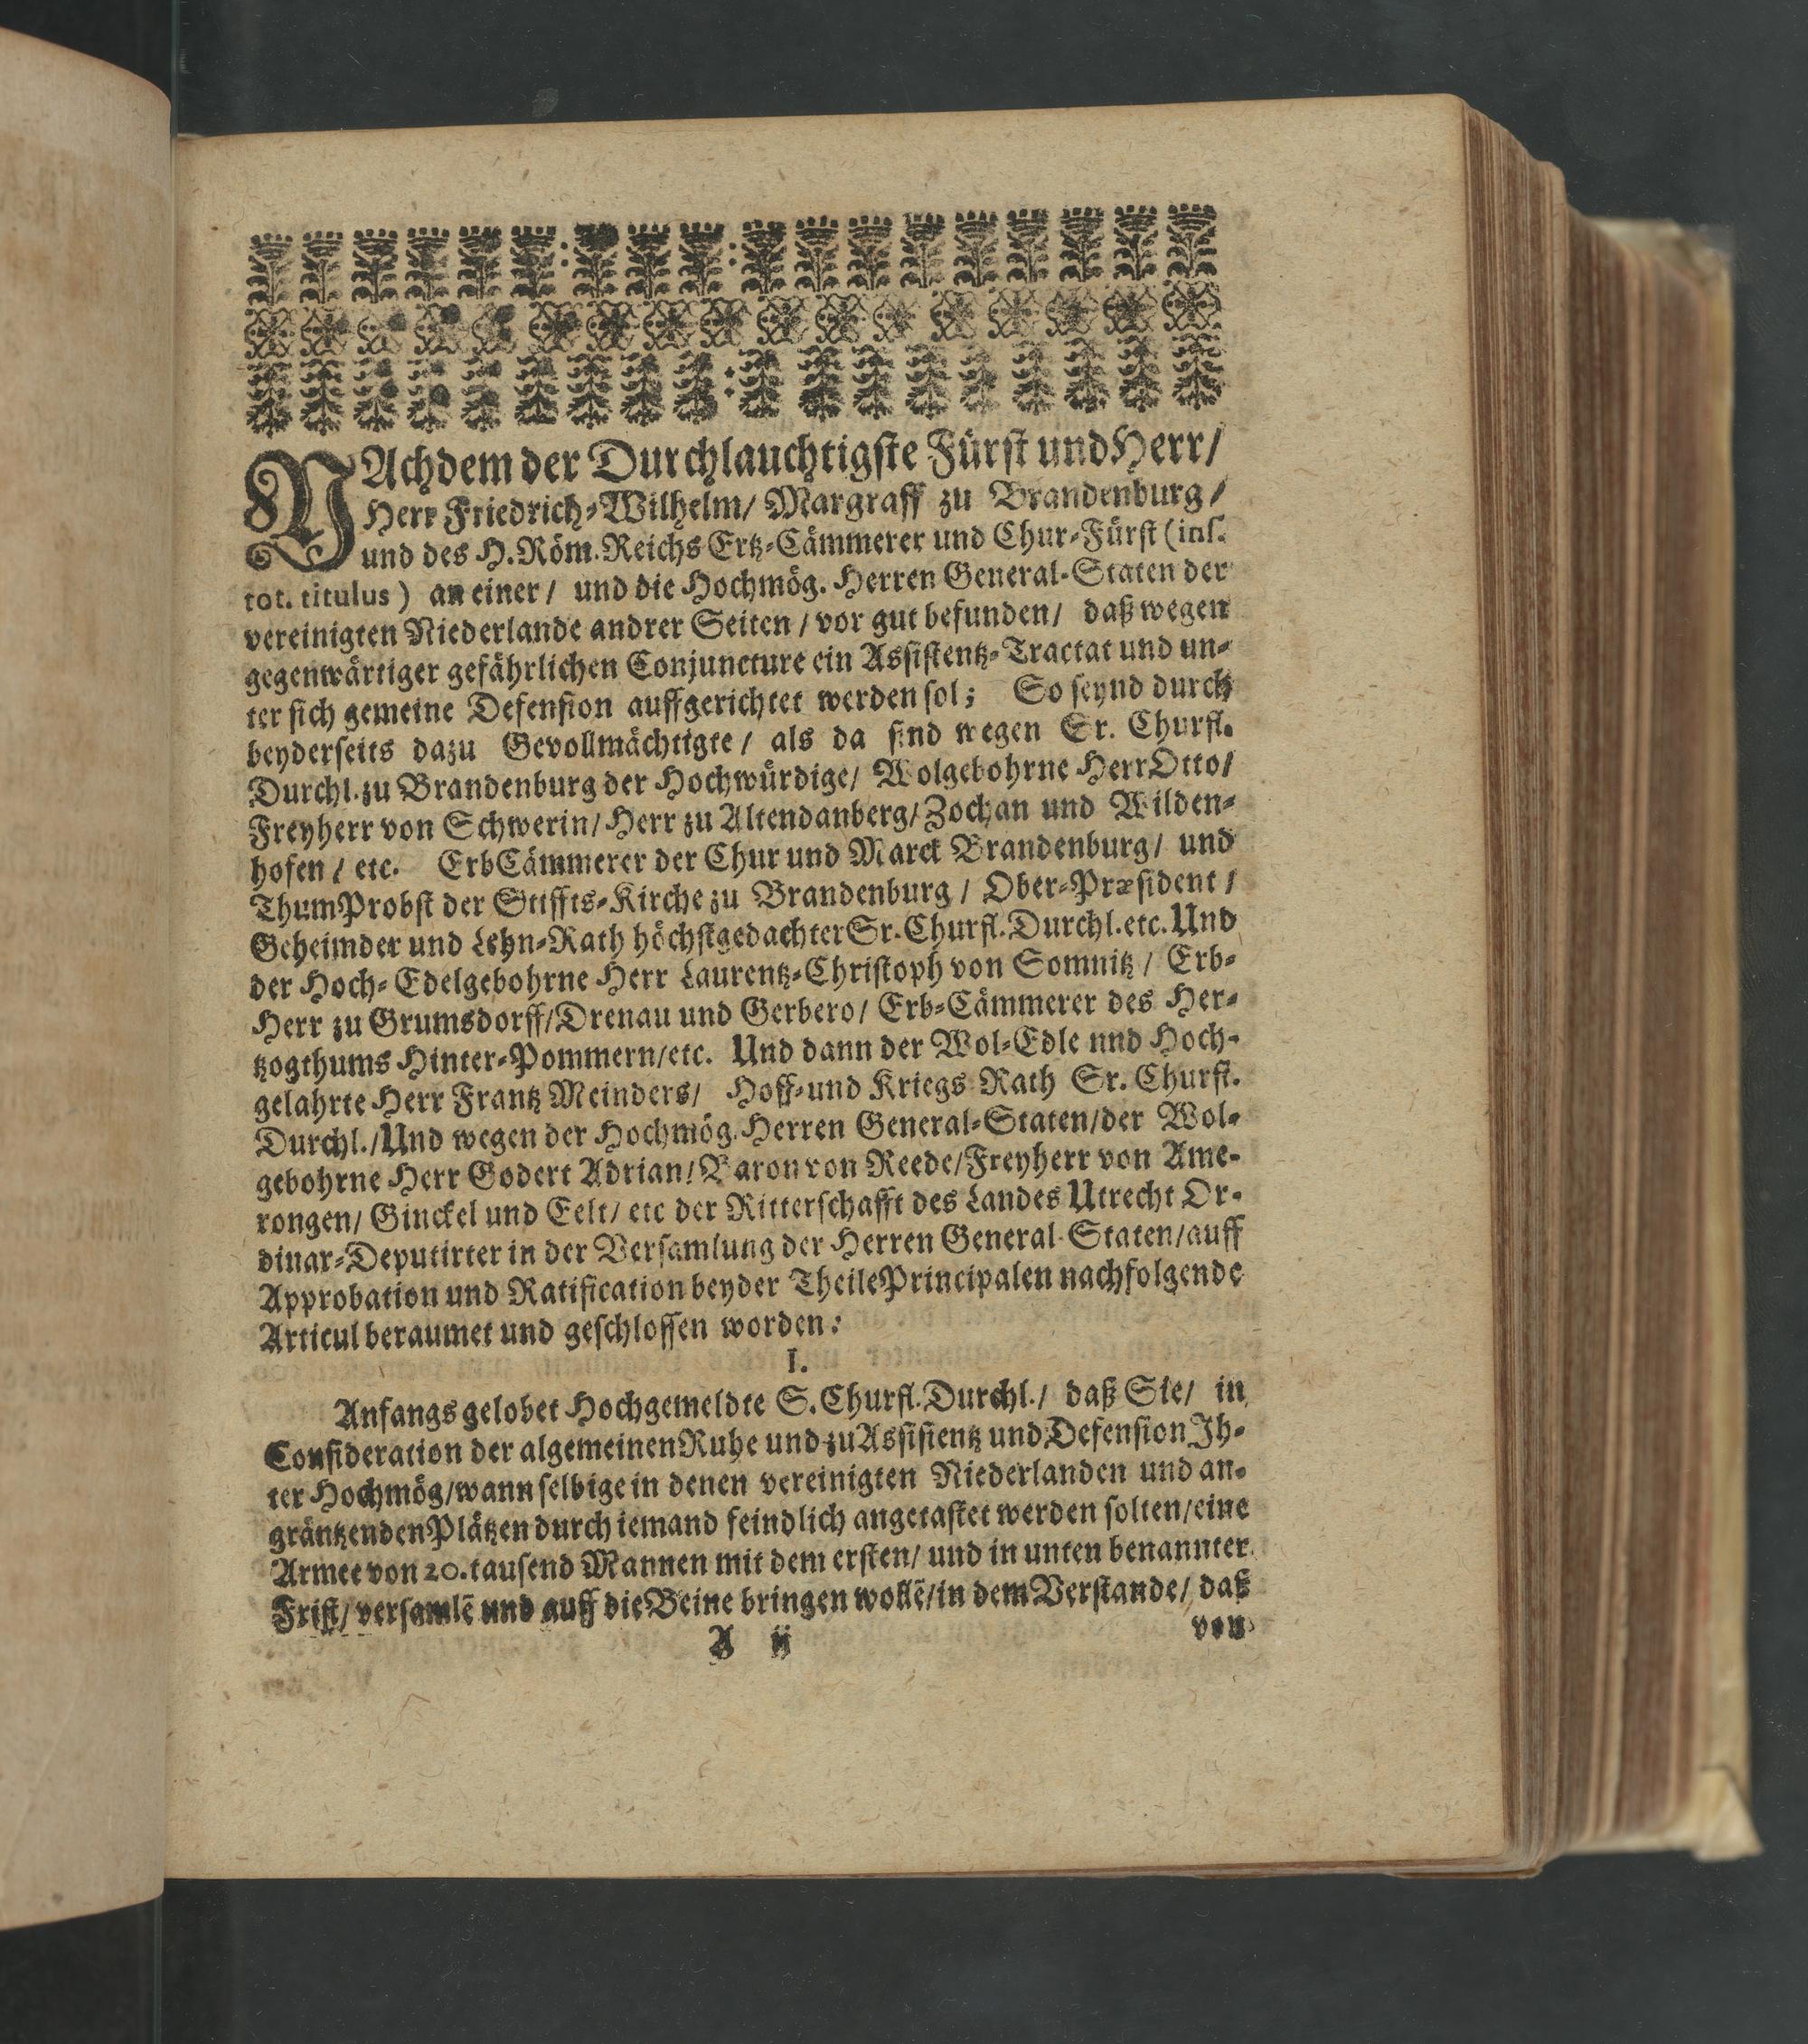 NAchdem der Durchlauchtigste Fürst und Herr/
Herr Friedrich-Wilhelm/ Margraff zu Brandenburg/
und des H. Röm. Reichs Ertz-Cämmerer und Chur-Fürst (ins.
tot. titulus) an einer/ und die Hochmög. Herren General-Staten der
vereinigten Niederlande andrer Seiten/ vor gut befunden/ daß wegen
gegenwärtiger gefährlichen Conjuncture ein Assistentz-Tractat und un-
ter sich gemeine Defension auffgerichtet werden sol; So seynd durch
beyderseits dazu Gevollmächtigte/ als da sind wegen Sr. Churfl.
Durchl. zu Brandenburg der Hochwürdige/ Wolgebohrne Herr Otto/
Freyherr von Schwerin/ Herr zu Altendanberg/ Zochan und Wilden-
hofen/ etc. ErbCämmerer der Chur und Marck Brandenburg/ und
ThumProbst der Stiffts-Kirche zu Brandenburg/ Ober-Præsident/
Geheimder und Lehn-Rath höchstgedachter Sr. Churfl. Durchl. etc. Und
der Hoch-Edelgebohrne Herr Laurentz-Christoph von Somnitz/ Erb-
Herr zu Grumsdorff/ Drenau und Gerbero/ Erb-Cämmerer des Her-
tzogthums Hinter-Pommern/ etc. Und dann der Wol-Edle und Hoch-
gelahrte Herr Frantz Meinders/ Hoff-und Kriegs Rath Sr. Churfl.
Durchl./ Und wegen der Hochmög. Herren General-Staten/ der Wol-
gebohrne Herr Godert Adrian/ Baron von Reede/ Freyherr von Ame-
rongen/ Ginckel und Eelt/ etc der Ritterschafft des Landes Utrecht Or-
dinar-Deputirter in der Versamlung der Herren General-Staten/ auff
Approbation und Ratification beyder Theile Principalen nachfolgende
Articul beraumet und geschlossen worden:
I.
Anfangs gelobet Hochgemeldte S. Churfl. Durchl./ daß Sie/ in
Consideration der algemeinen Ruhe und zu Assistentz und Defension Ih-
rer Hochmög/ wann selbige in denen vereinigten Niederlanden und an-
gräntzenden Plätzen durch iemand feindlich angetastet werden solten/ eine
Armee von 20. tausend Mannen mit dem ersten/ und in unten benannter
Frist/ versamlē und auff die Beine bringen wollē/ in dem Verstande/ daß
A ij von